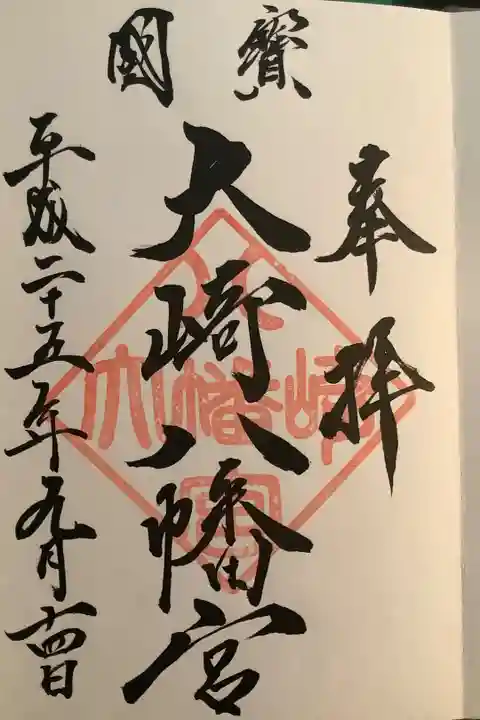 國寶
奉拝
大崎八幡宮
平成二十五年九月十四日
八幡大崎宮